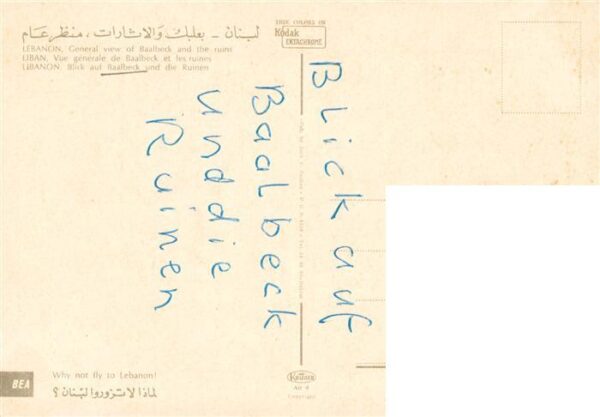 لبنان - بعلبك والاثارات، منظر عام
LEBANON, General view of Baalbeck and the ruins
LIBAN, Vue générale de Baalbeck et les ruines
LIBANON: Blick auf Baalbeck und die Ruinen
TRUE COLORS ON
Kodak
EKTACHROME
Blick auf
Baalbeck
und die
Ruinen
BEA
Why not fly to Lebanon!
لماذا لا تزوروا لبنان؟
Kruger